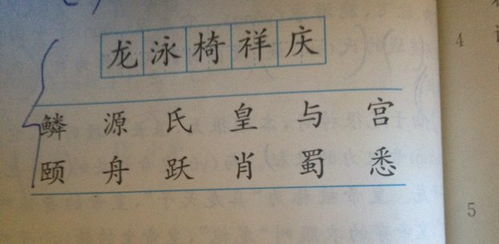 龙泳椅祥庆
鳞 源 氏 皇 与 宫
颐 舟 跃 肖 蜀 悉
4
5